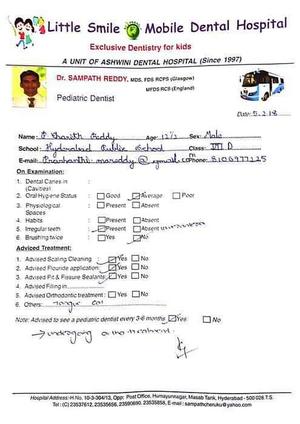 Little Smile Mobile Dental Hospital
Exclusive Dentistry for kids
A UNIT OF ASHWINI DENTAL HOSPITAL (Since 1997)
Dr. SAMPATH REDDY, MDS, FDS RCPS (Glasgow)
MFDS RCS (England)
Pediatric Dentist
Date: 5.2.18
Name: Reddy Age: 12/ Sex: Male
School: Hyderabad Public School Class: VII D
E-mail: Ph:
On Examination:
1. Dental Caries in :
(Cavities)
2. Oral Hygiene Status : Good Average Poor
3. Physological : Present Absent
Spaces
4. Habits : Present Absent
5. Irregular teeth : Present Absent
6. Brushing twice : Yes No
Adviced Treatment:
1. Advised Scaling Cleaning : Yes No
2. Advised Flouride application: Yes No
3. Advised Pit & Fissure Sealants: Yes No
4. Advised Filling in
5. Advised Orthodontic treatment : Yes No
6. Others:
Note: Advised to see a pediatric dentist every 3-6 months Yes No
→ undergoing ortho treatment.
Hospital Address: H.No. 10-3-304/13, Opp: Post Office, Humayunnagar, Masab Tank, Hyderabad - 500 028 T.S.
Tel: (C) 23537612, 23535656, 23590690, 23535858, E-mail: sampathcheruku@yahoo.com